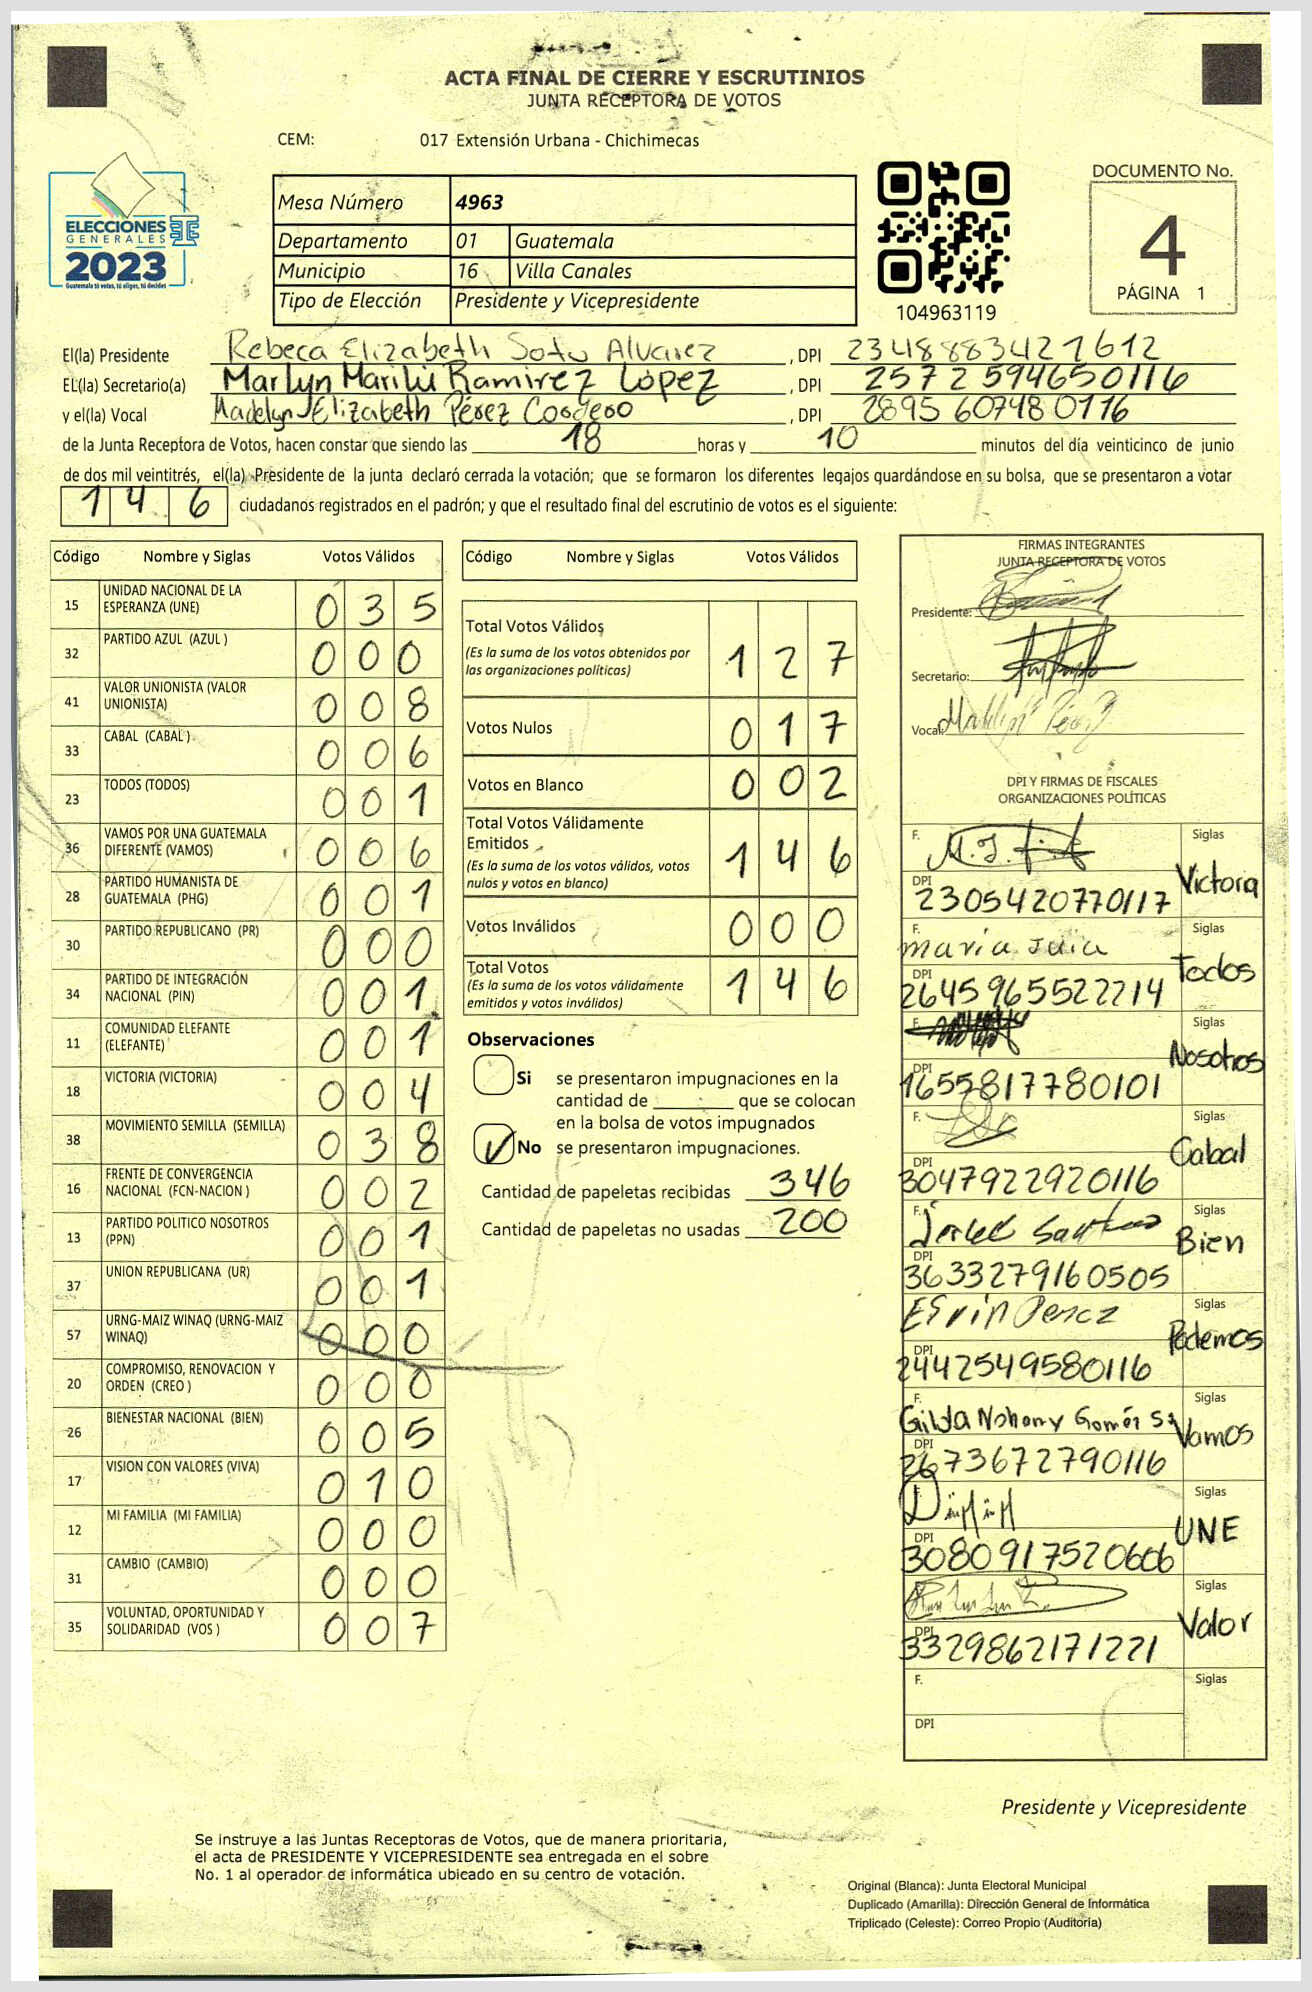 ACTA FINAL DE CIERRE Y ESCRUTINIOS
JUNTA RECEPTORA DE VOTOS
CEM: 017 Extensión Urbana - Chichimecas
ELECCIONES
GENERALES
2023
Guatemala tú votas, tú eliges, tú decides
Mesa Número 4963
Departamento 01 Guatemala
Municipio 16 Villa Canales
Tipo de Elección Presidente y Vicepresidente
104963119
DOCUMENTO No.
4
PÁGINA 1
El(la) Presidente Rebeca Elizabeth Soto Alvarez , DPI 2348883421612
EL(la) Secretario(a) Marlyn Marilú Ramirez López , DPI 2572 594650116
y el(la) Vocal Madelyn Elizabeth Pérez Cordero , DPI 2895 607480116
de la Junta Receptora de Votos, hacen constar que siendo las 18 horas y 10 minutos del día veinticinco de junio
de dos mil veintitrés, el(la) Presidente de la junta declaró cerrada la votación; que se formaron los diferentes legajos guardándose en su bolsa, que se presentaron a votar
146 ciudadanos registrados en el padrón; y que el resultado final del escrutinio de votos es el siguiente:
Código Nombre y Siglas Votos Válidos
15 UNIDAD NACIONAL DE LA ESPERANZA (UNE) 035
32 PARTIDO AZUL (AZUL ) 000
41 VALOR UNIONISTA (VALOR UNIONISTA) 008
33 CABAL (CABAL ) 006
23 TODOS (TODOS) 001
36 VAMOS POR UNA GUATEMALA DIFERENTE (VAMOS) 006
28 PARTIDO HUMANISTA DE GUATEMALA (PHG) 001
30 PARTIDO REPUBLICANO (PR) 000
34 PARTIDO DE INTEGRACIÓN NACIONAL (PIN) 001
11 COMUNIDAD ELEFANTE (ELEFANTE) 001
18 VICTORIA (VICTORIA) 004
38 MOVIMIENTO SEMILLA (SEMILLA) 038
16 FRENTE DE CONVERGENCIA NACIONAL (FCN-NACION ) 002
13 PARTIDO POLITICO NOSOTROS (PPN) 001
37 UNION REPUBLICANA (UR) 001
57 URNG-MAIZ WINAQ (URNG-MAIZ WINAQ) 000
20 COMPROMISO, RENOVACION Y ORDEN (CREO ) 000
26 BIENESTAR NACIONAL (BIEN) 005
17 VISION CON VALORES (VIVA) 010
12 MI FAMILIA (MI FAMILIA) 000
31 CAMBIO (CAMBIO) 000
35 VOLUNTAD, OPORTUNIDAD Y SOLIDARIDAD (VOS ) 007
Código Nombre y Siglas Votos Válidos
Total Votos Válidos 127
(Es la suma de los votos obtenidos por
las organizaciones políticas)
Votos Nulos 017
Votos en Blanco 002
Total Votos Válidamente
Emitidos 146
(Es la suma de los votos válidos, votos
nulos y votos en blanco)
Votos Inválidos 000
Total Votos 146
(Es la suma de los votos válidamente
emitidos y votos inválidos)
Observaciones
Si se presentaron impugnaciones en la
cantidad de ________ que se colocan
en la bolsa de votos impugnados
No se presentaron impugnaciones.
Cantidad de papeletas recibidas 346
Cantidad de papeletas no usadas 200
FIRMAS INTEGRANTES
JUNTA RECEPTORA DE VOTOS
Presidente:
Secretario:
Vocal:
DPI Y FIRMAS DE FISCALES
ORGANIZACIONES POLÍTICAS
F. Siglas
DPI 2305420770117 Victoria
F. maria Julia Siglas
DPI 2645965522214 Todos
F. Siglas
DPI 1655817780101 Nosotros
F. Siglas
DPI 3047922920116 Cabal
F. Siglas
DPI 3633279160505 Bien
F. Siglas
DPI 2442549580116 Podemos
F. Gilda Nohemy Gomér S. Siglas
DPI 2673672790116 Vamos
F. Siglas
DPI 3080917520606 UNE
F. Siglas
DPI 3329862171221 Valor
F. Siglas
DPI
Presidente y Vicepresidente
Se instruye a las Juntas Receptoras de Votos, que de manera prioritaria,
el acta de PRESIDENTE Y VICEPRESIDENTE sea entregada en el sobre
No. 1 al operador de informática ubicado en su centro de votación.
Original (Blanca): Junta Electoral Municipal
Duplicado (Amarilla): Dirección General de Informática
Triplicado (Celeste): Correo Propio (Auditoría)